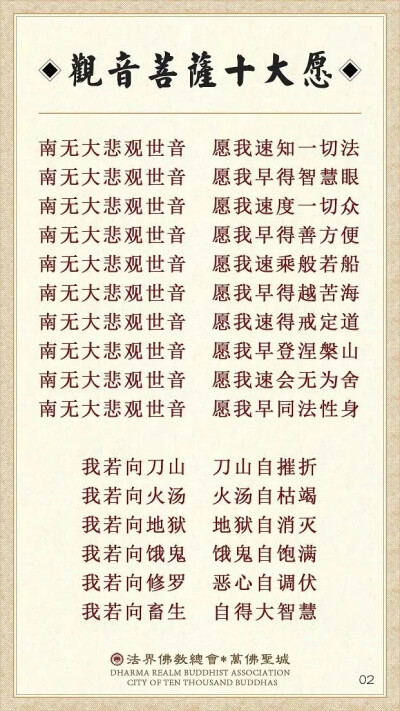 觀音菩薩十大愿
南无大悲观世音 愿我速知一切法
南无大悲观世音 愿我早得智慧眼
南无大悲观世音 愿我速度一切众
南无大悲观世音 愿我早得善方便
南无大悲观世音 愿我速乘般若船
南无大悲观世音 愿我早得越苦海
南无大悲观世音 愿我速得戒定道
南无大悲观世音 愿我早登涅槃山
南无大悲观世音 愿我速会无为舍
南无大悲观世音 愿我早同法性身
我若向刀山 刀山自摧折
我若向火汤 火汤自枯竭
我若向地狱 地狱自消灭
我若向饿鬼 饿鬼自饱满
我若向修罗 恶心自调伏
我若向畜生 自得大智慧
法界佛教總會*萬佛聖城
DHARMA REALM BUDDHIST ASSOCIATION
CITY OF TEN THOUSAND BUDDHAS
02